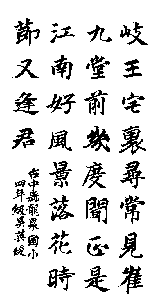 岐王宅裏尋常見崔
九堂前幾度聞正是
江南好風景落花時
節又逢君
台中縣龍泉國小
四年級吳